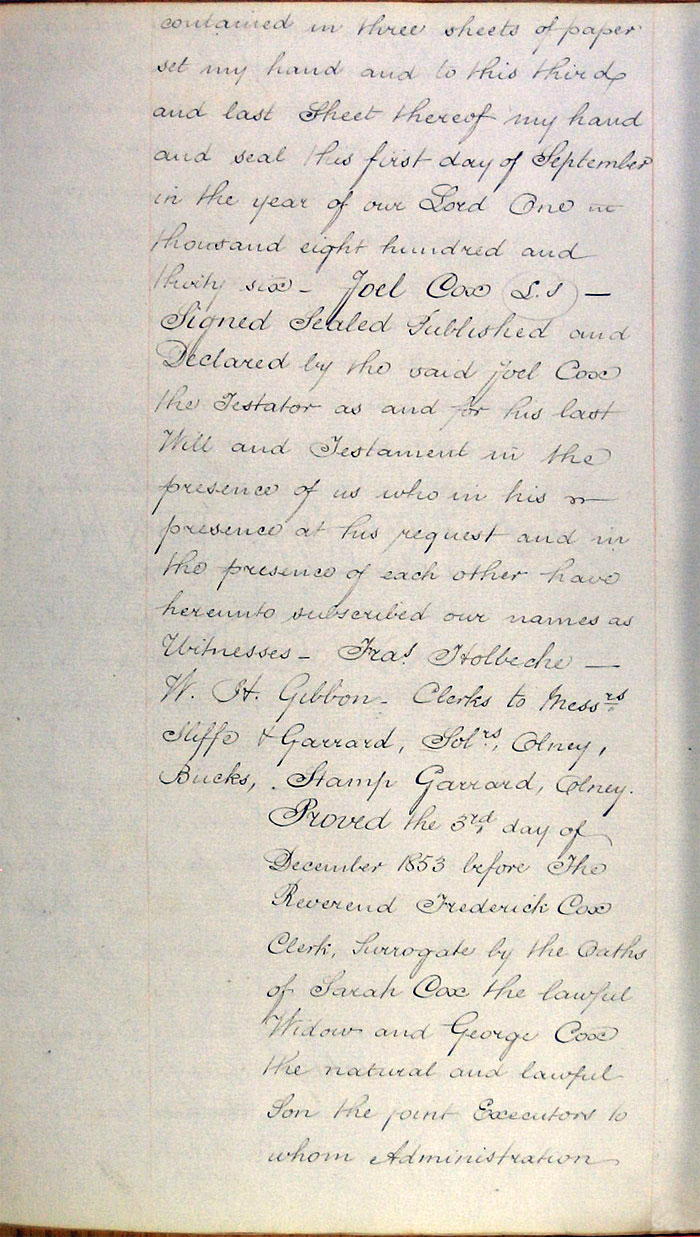 contained in three sheets of paper
set my hand and to this third
and last Sheet thereof my hand
and seal this first day of September
in the year of our Lord One
thousand eight hundred and
thirty six - Joel Cox L.S —
Signed Sealed Published and
Declared by the said Joel Cox
the Testator as and for his last
Will and Testament in the
presence of us who in his
presence at his request and in
the presence of each other have
hereunto subscribed our names as
Witnesses - Fras. Holbeche —
W. H. Gibbon - Clerks to Messrs.
& Garrard, Solrs, Olney,
Bucks, . Stamp Garrard, Olney.
Proved the 3rd, day of
December 1853 before The
Reverend Frederick Cox
Clerk, Surrogate by the Oaths
of Sarah Cox the lawful
Widow and George Cox
the natural and lawful
Son the joint Executors to
whom Administration